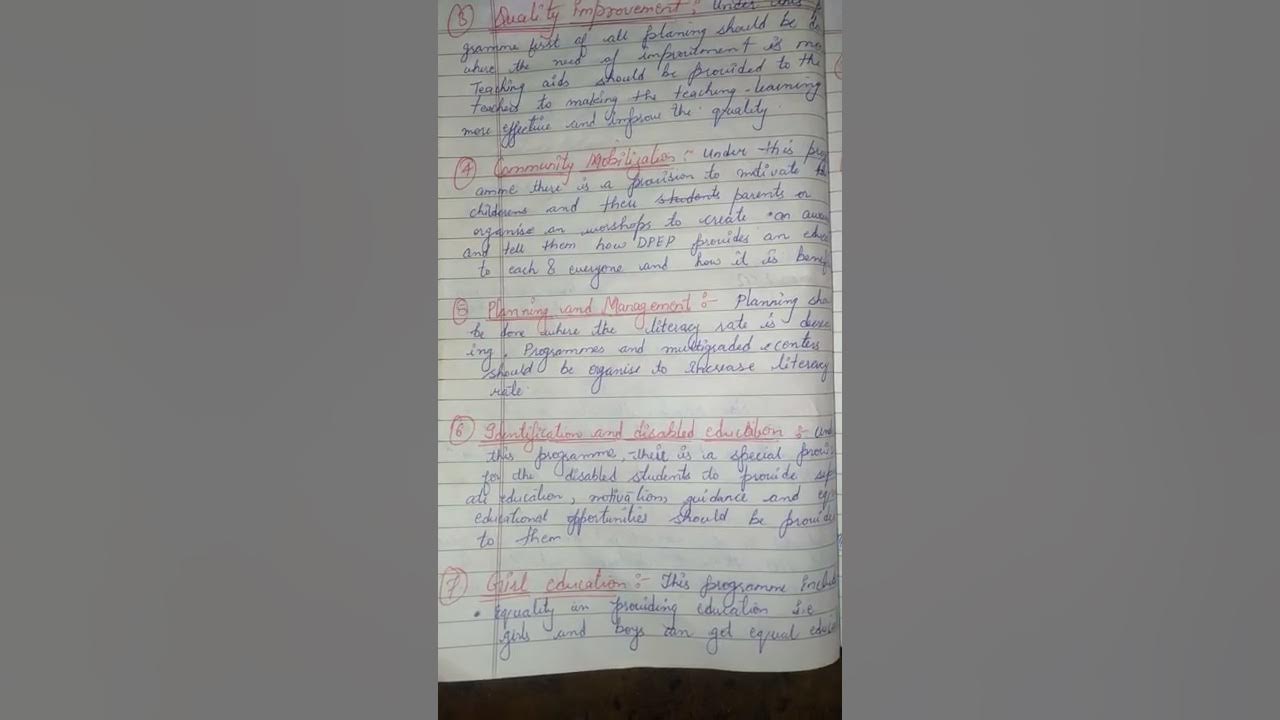 ③ Quality Improvement :- Under this p
gramme first of all planing should be d
where the need of improitment is mo
Teaching aids should be provided to the
teachers to making the teaching-learning
more effective and improve the quality
④ Community Mobilization :- Under this prog
amme there is a provision to motivate th
childerens and their students parents or
organise an worshops to create an awa
and tell them how DPEP provides an educa
to each & everyone and how it is benefi
⑤ Planning and Management :- Planning sho
be done where the literacy rate is decre
ing. Programmes and multigraded centers
should be organise to increase literacy
rate.
⑥ Identification and disabled education :- Und
this programme, there is a special provis
for the disabled students to provide sep
ate education, motivation, guidance and equ
educational opportunities should be provide
to them
⑦ Girl education :- This programme includ
• Equality in providing education i.e
girls and boys can get equal educa